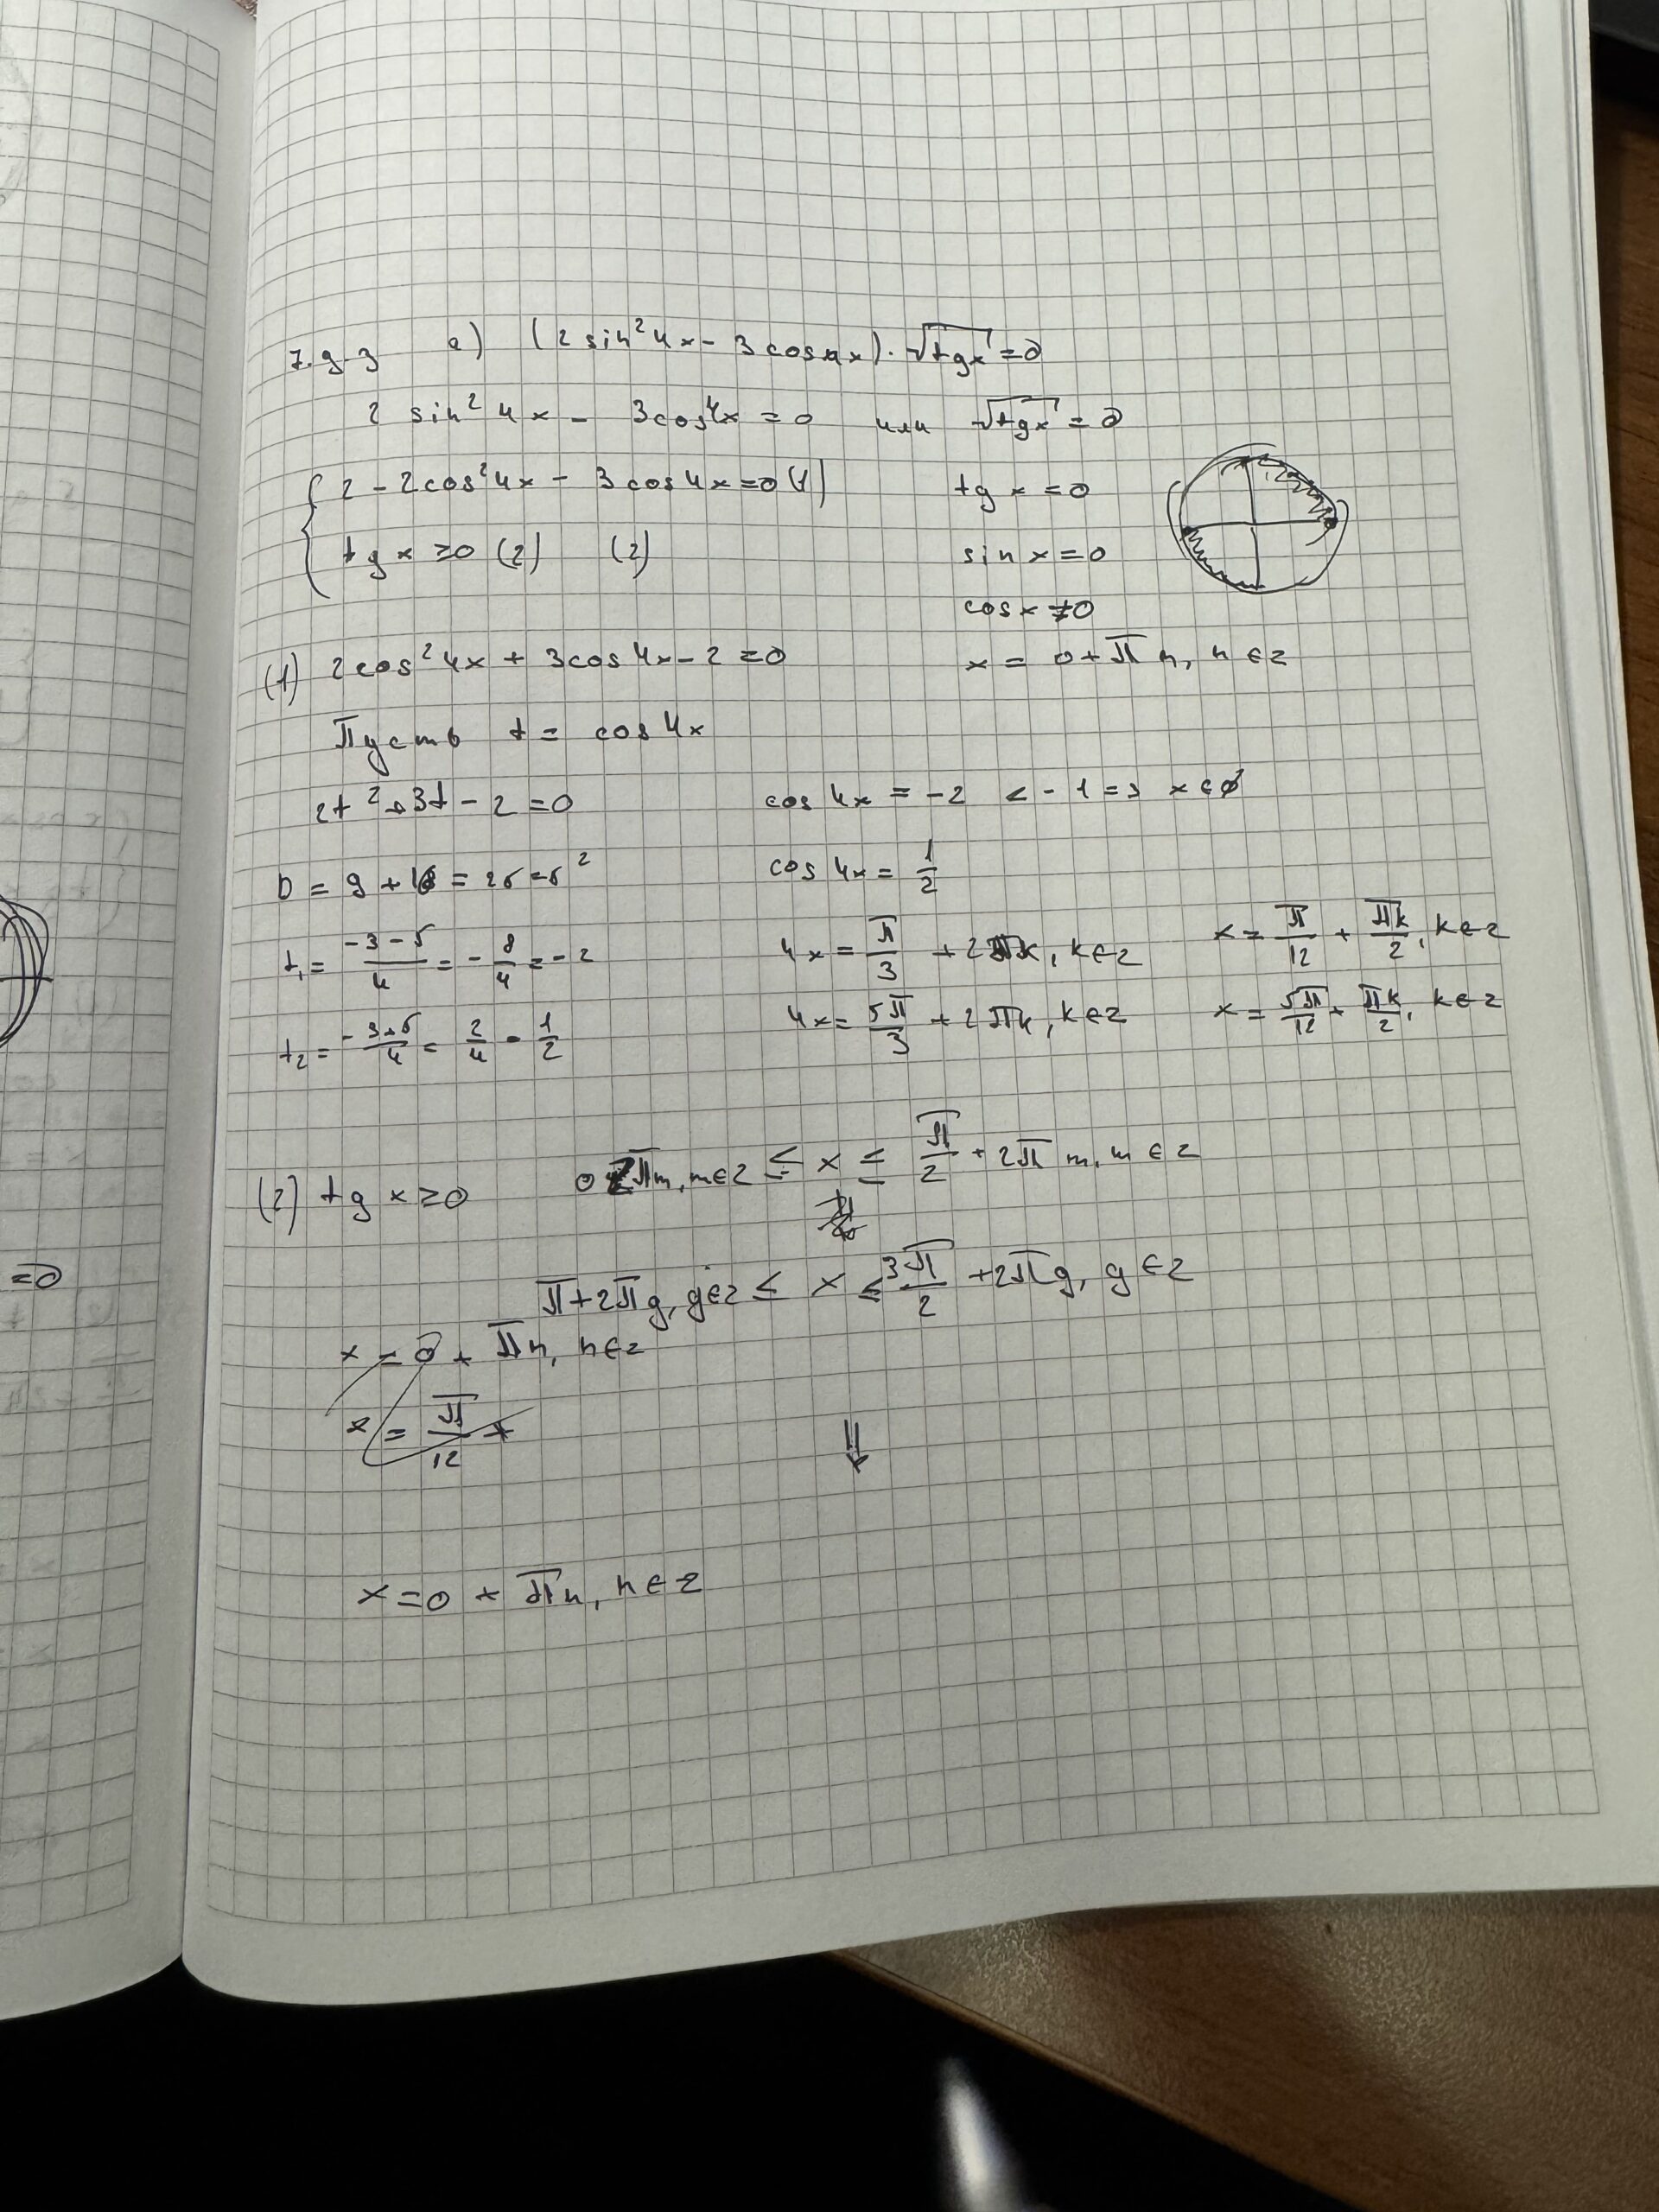 7.9-3 а) (2 sin² 4x - 3 cos 4x) · √tgx = 0
2 sin² 4x - 3 cos 4x = 0 или √tgx = 0
{ 2 - 2cos² 4x - 3 cos 4x = 0 (1) tg x = 0
tg x ≥ 0 (2) (2) sin x = 0
cos x ≠ 0
(1) 2cos² 4x + 3cos 4x - 2 = 0 x = 0 + πn, n ∈ Z
Пусть t = cos 4x
2t² + 3t - 2 = 0 cos 4x = -2 < -1 => x ∈ ∅
D = 9 + 16 = 25 = 5² cos 4x = 1/2
t₁ = (-3 - 5)/4 = -8/4 = -2 4x = π/3 + 2πk, k ∈ Z x = π/12 + πk/2, k ∈ Z
t₂ = (-3 + 5)/4 = 2/4 = 1/2 4x = 5π/3 + 2πk, k ∈ Z x = 5π/12 + πk/2, k ∈ Z
(2) tg x ≥ 0 0 2πm, m ∈ Z ≤ x ≤ π/2 + 2πm, m ∈ Z
π + 2πg, g ∈ Z ≤ x ≤ 3π/2 + 2πg, g ∈ Z
x = 0 + πn, n ∈ Z
x = π/12 +
⇓
x = 0 + πn, n ∈ Z
= 0